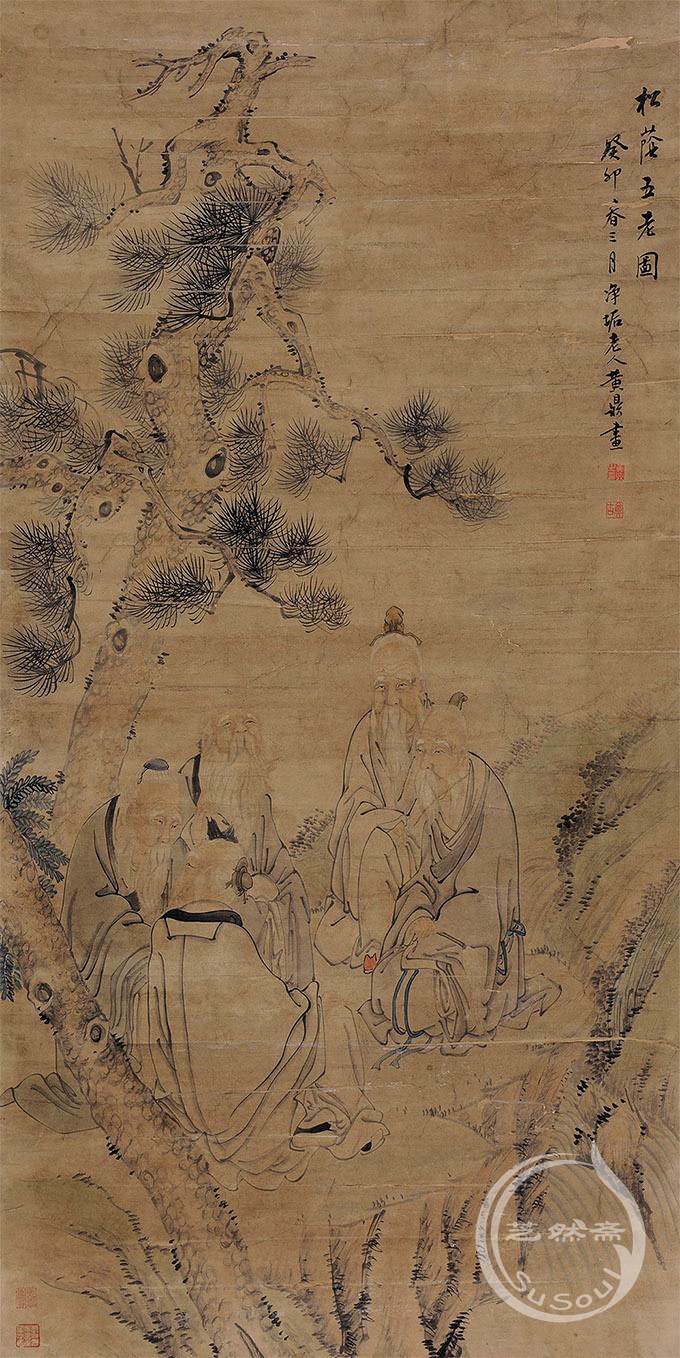 松蔭五老圖
癸卯春三月淨垢老人黄鼎畫
芝然斋
SuSoul